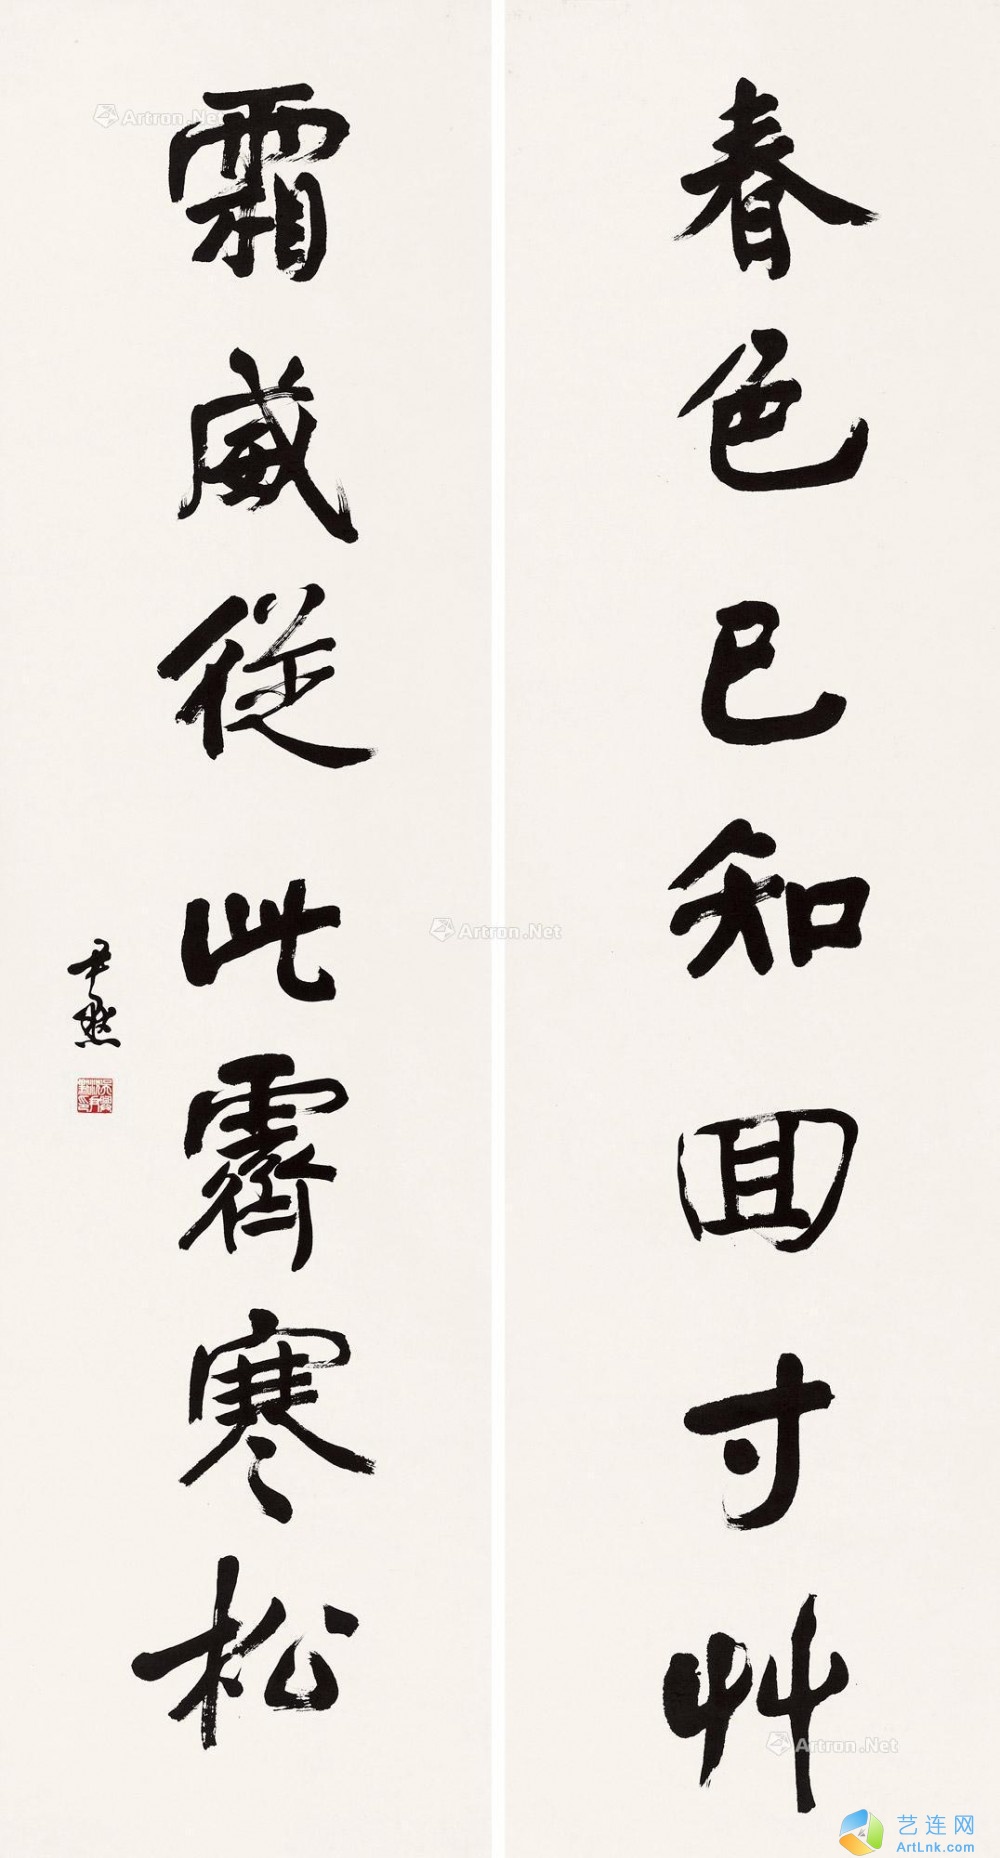 春色已知回寸艸
霜威從此霽寒松
尹默
Artron.Net
Artron.Net
Artron.Net
艺连网
ArtLnk.com